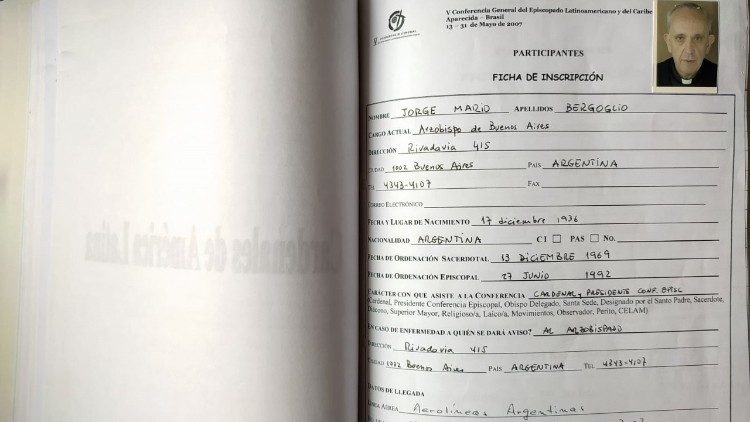 V Conferencia General del Episcopado Latinoamericano y del Caribe
Aparecida – Brasil
13 – 31 de Mayo de 2007
PARTICIPANTES
FICHA DE INSCRIPCIÓN
NOMBRE JORGE MARIO APELLIDOS BERGOGLIO
CARGO ACTUAL Arzobispo de Buenos Aires
DIRECCIÓN Rivadavia 415
CIUDAD 1002 Buenos Aires PAIS ARGENTINA
TEL 4343-4107 FAX
CORREO ELECTRÓNICO
FECHA Y LUGAR DE NACIMIENTO 17 diciembre 1936
NACIONALIDAD ARGENTINA CI PAS No.
FECHA DE ORDENACIÓN SACERDOTAL 13 DICIEMBRE 1969
FECHA DE ORDENACIÓN EPISCOPAL 27 JUNIO 1992
CARÁCTER CON QUE ASISTE A LA CONFERENCIA CARDENAL y PRESIDENTE CONF. EPISC
(Cardenal, Presidente Conferencia Episcopal, Obispo Delegado, Santa Sede, Designado por el Santo Padre, Sacerdote,
Diácono, Superior Mayor, Religioso/a, Laico/a, Movimientos, Observador, Perito, CELAM)
EN CASO DE ENFERMEDAD A QUIÉN SE DARÁ AVISO? AL ARZOBISPADO
DIRECCIÓN Rivadavia 415
CIUDAD 1002 Buenos Aires PAIS ARGENTINA TEL 4343-4107
DATOS DE LLEGADA
LÍNEA AÉREA Aerolíneas Argentinas
Cardenales de América Latina